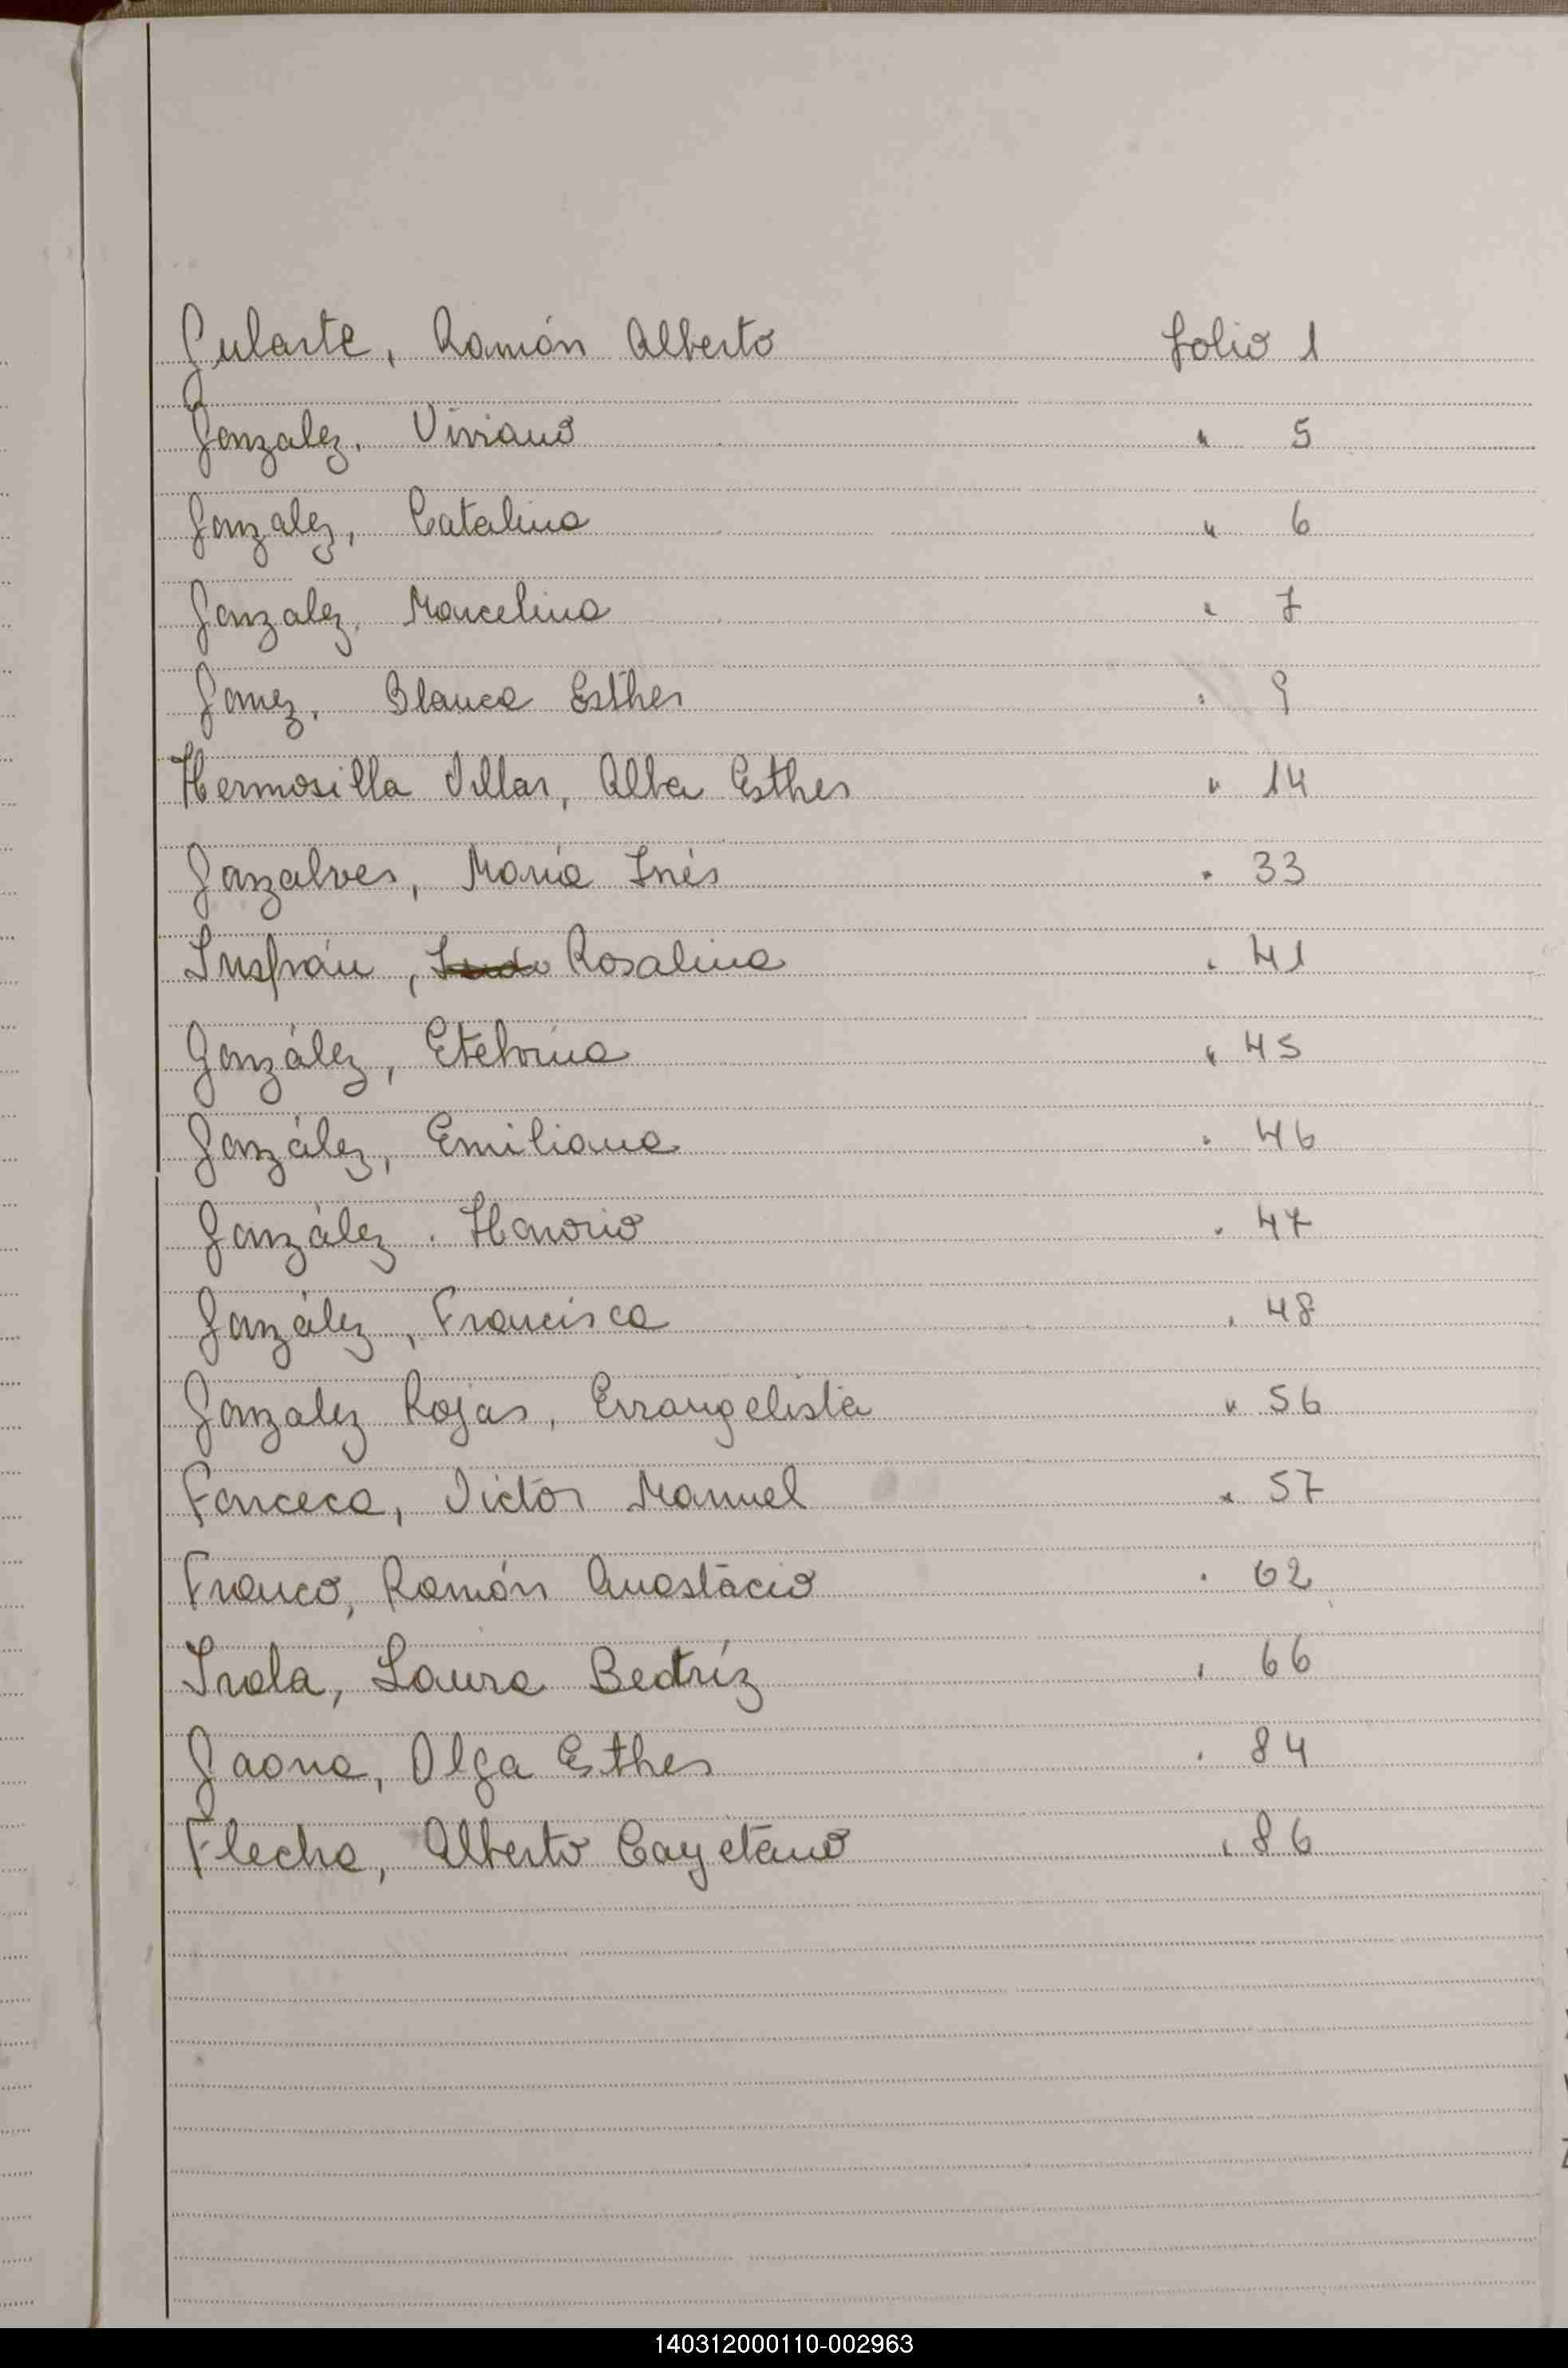 Gularte, Ramón Alberto folio 1
Gonzalez, Viviano " 5
Gonzalez, Catalina " 6
Gonzalez, Marcelina " 7
Gomez, Blanca Esther " 9
Hermosilla Villar, Alba Esther " 14
Gonzalves, María Inés " 33
Insfrán, Rosalina " 41
González, Etelvina " 45
González, Emiliana " 46
González, Honorio " 47
González, Francisca " 48
Gonzalez Rojas, Evangelista " 56
Fonceca, Victor Manuel " 57
Franco, Ramón Anastacio " 62
Irala, Laura Beatríz " 66
Gaona, Olga Esther " 84
Flecha, Alberto Cayetano " 86
140312000110-002963